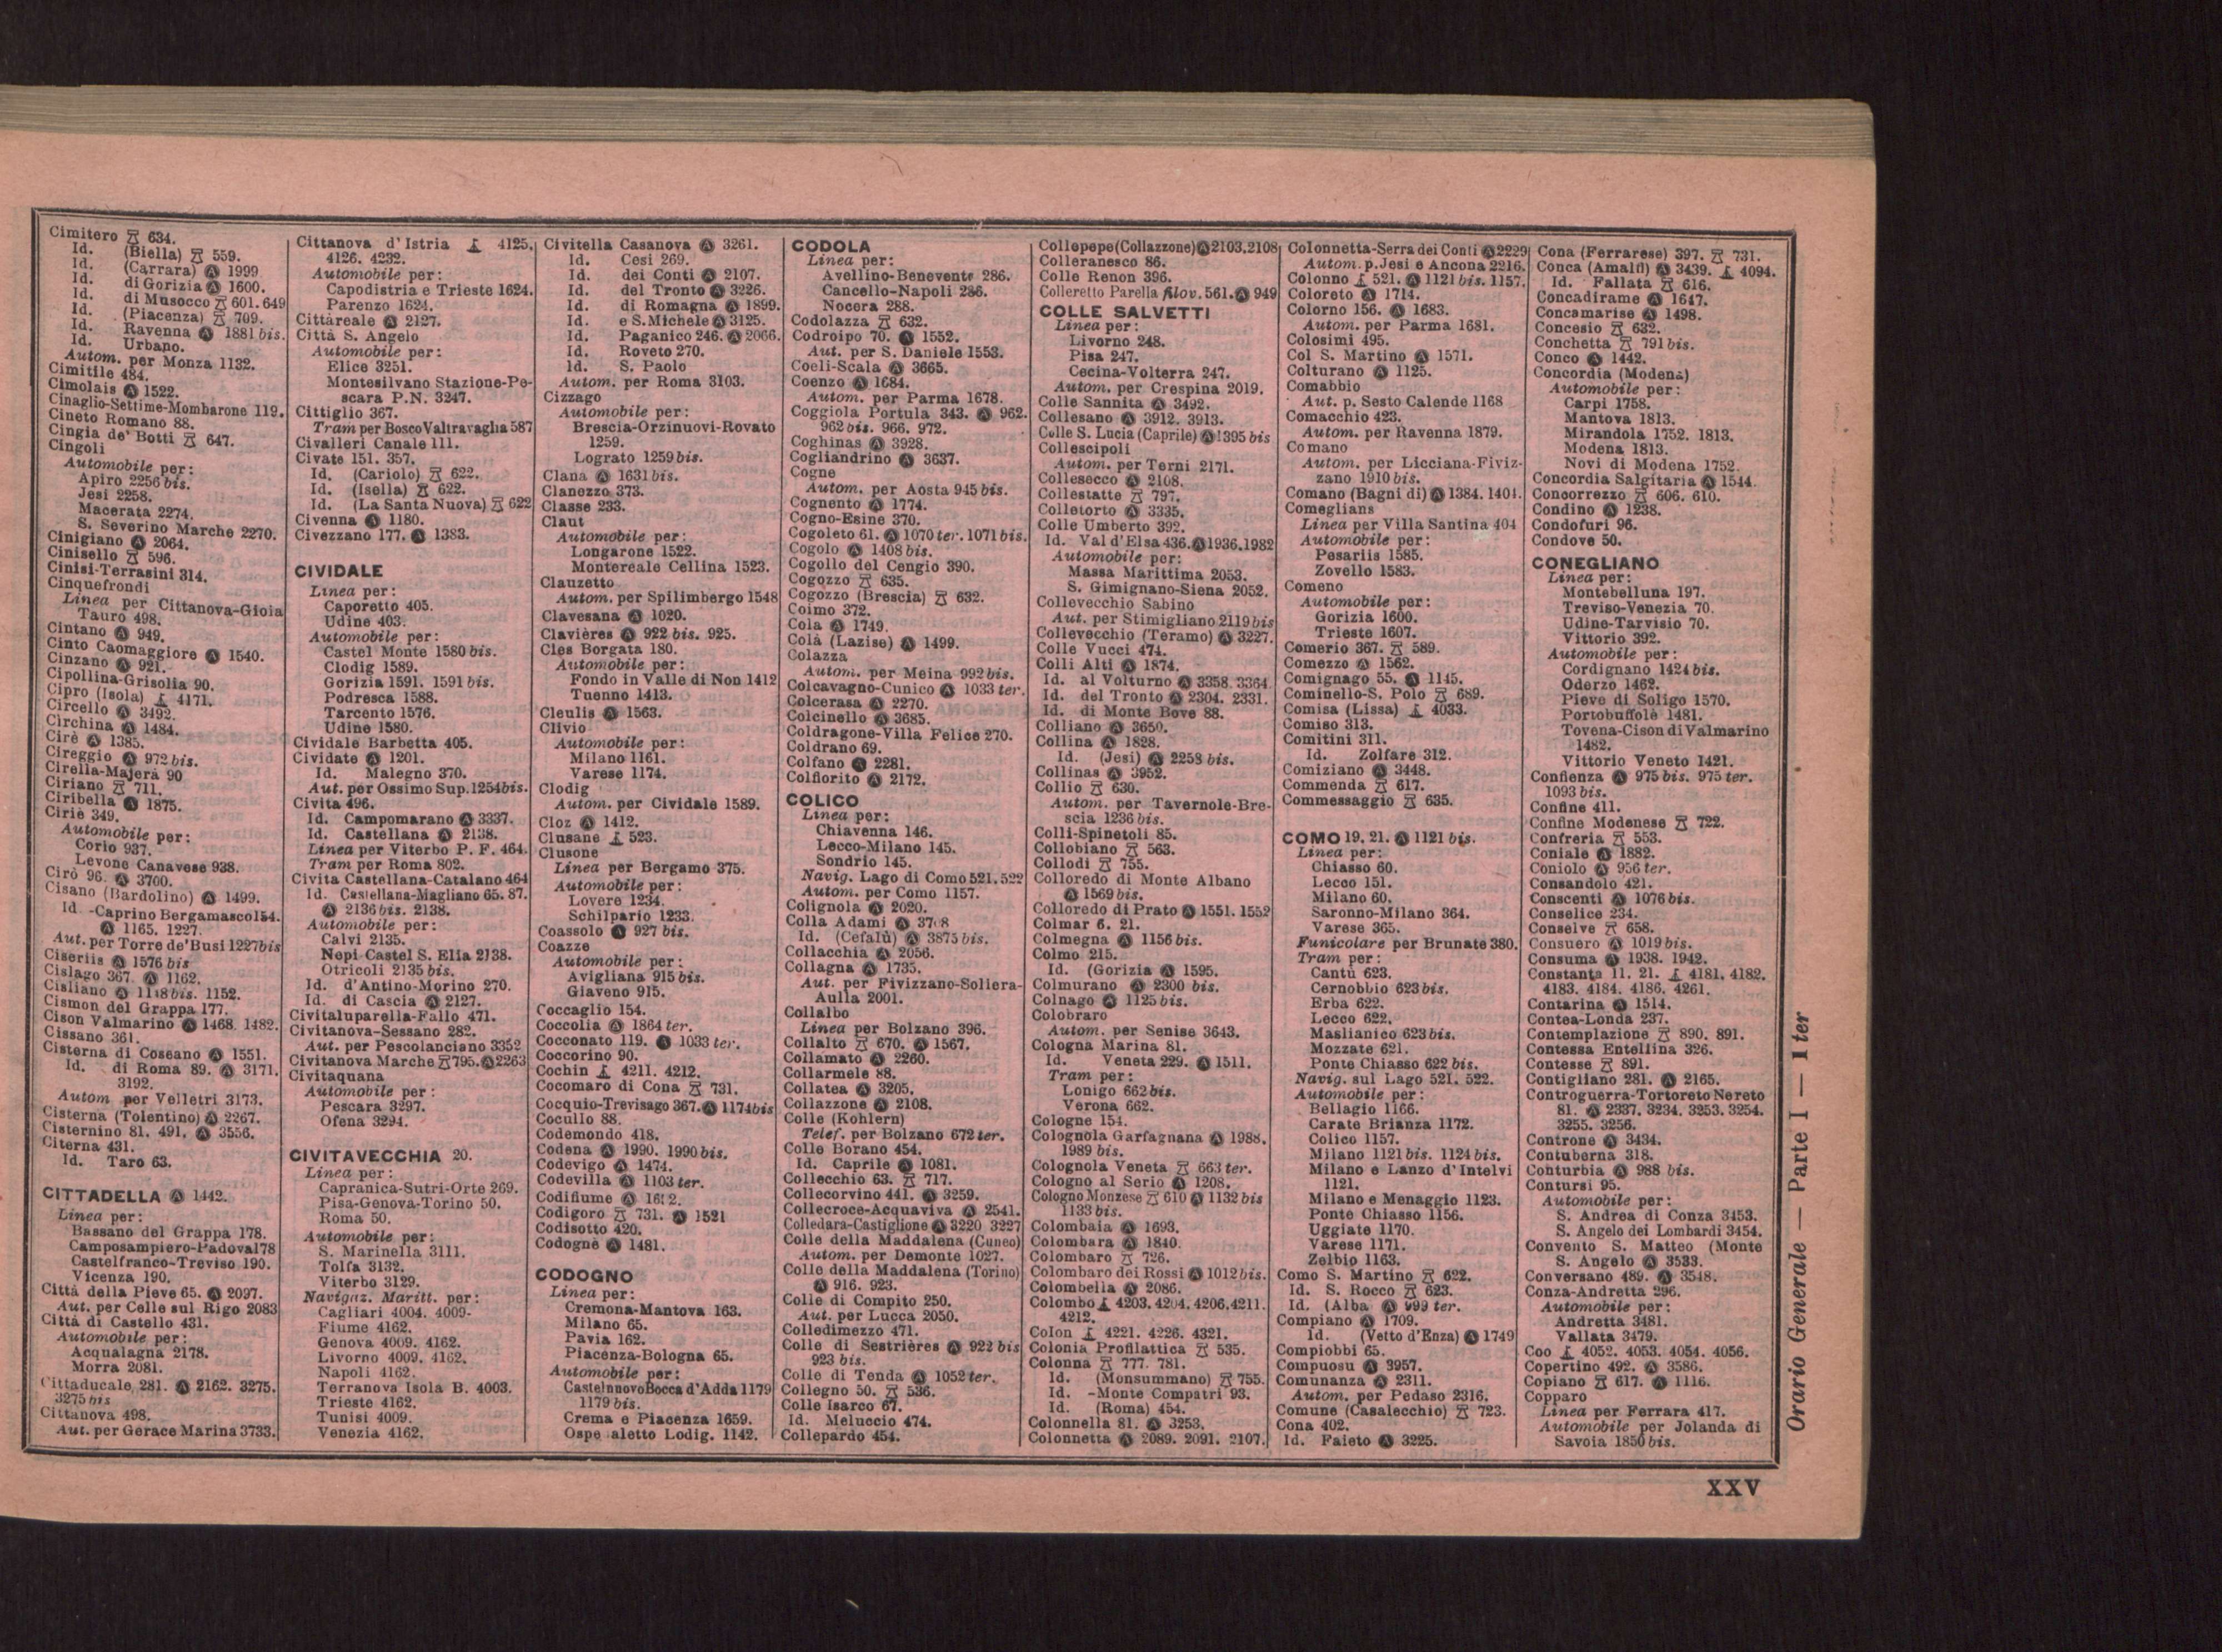 Cimitero 634.
Id. (Biella) 559.
Id. (Carrara) Ⓐ 1999
Id. di Gorizia Ⓐ 1600.
Id. di Musocco 601. 649
Id. (Piacenza) 709.
Id. Ravenna Ⓐ 1881 bis.
Id. Urbano.
Autom. per Monza 1132.
Cimitile 484.
Cimolais Ⓐ 1522.
Cinaglio-Settime-Mombarone 119.
Cineto Romano 88.
Cingia de' Botti 647.
Cingoli
Automobile per:
Apiro 2256 bis.
Jesi 2258.
Macerata 2274.
S. Severino Marche 2270.
Cinigiano Ⓐ 2064.
Cinisello 596.
Cinisi-Terrasini 314.
Cinquefrondi
Linea per Cittanova-Gioia
Tauro 498.
Cintano Ⓐ 949.
Cinto Caomaggiore Ⓐ 1540.
Cinzano Ⓐ 921.
Cipollina-Grisolia 90.
Cipro (Isola) 4171.
Circello Ⓐ 3492.
Circhina Ⓐ 1484.
Cirè Ⓐ 1385.
Cireggio Ⓐ 972 bis.
Cirella-Majerà 90
Ciriano 711.
Ciribella Ⓐ 1875.
Ciriè 349.
Automobile per:
Corio 937.
Levone Canavese 938.
Cirò 96. Ⓐ 3700.
Cisano (Bardolino) Ⓐ 1499.
Id -Caprino Bergamasco 154.
Ⓐ 1165. 1227.
Aut. per Torre de' Busi 1227 bis
Ciseriis Ⓐ 1576 bis
Cislago 367. Ⓐ 1162.
Cisliano Ⓐ 1118 bis. 1152.
Cismon del Grappa 177.
Cison Valmarino Ⓐ 1468. 1482.
Cissano 361.
Cisterna di Coseano Ⓐ 1551.
Id. di Roma 89. Ⓐ 3171.
3192.
Autom per Velletri 3173.
Cisterna (Tolentino) Ⓐ 2267.
Cisternino 81. 491. Ⓐ 3556.
Citerna 431.
Id. Taro 63.
CITTADELLA Ⓐ 1442.
Linea per:
Bassano del Grappa 178.
Camposampiero-Padova 178
Castelfranco-Treviso 190.
Vicenza 190.
Città della Pieve 65. Ⓐ 2097.
Aut. per Celle sul Rigo 2083
Città di Castello 431.
Automobile per:
Acqualagna 2178.
Morra 2081.
Cittaducale 281. Ⓐ 2162. 3275.
3275 bis
Cittanova 498.
Aut. per Gerace Marina 3733.
Cittanova d'Istria 4125.
4126. 4232.
Automobile per:
Capodistria e Trieste 1624.
Parenzo 1624.
Cittàreale Ⓐ 2127.
Città S. Angelo
Automobile per:
Elice 3251.
Montesilvano Stazione-Pe-
scara P.N. 3247.
Cittiglio 367.
Tram per Bosco Valtravaglia 587
Civalleri Canale 111.
Civate 151. 357.
Id. (Cariolo) 622.
Id. (Isella) 622.
Id. (La Santa Nuova) 622
Civenna Ⓐ 1180.
Civezzano 177. Ⓐ 1383.
CIVIDALE
Linea per:
Caporetto 405.
Udine 403.
Automobile per:
Castel Monte 1580 bis.
Clodig 1589.
Gorizia 1591. 1591 bis.
Podresca 1588.
Tarcento 1576.
Udine 1580.
Cividale Barbetta 405.
Cividate Ⓐ 1201.
Id. Malegno 370.
Aut. per Ossimo Sup. 1254 bis.
Civita 496.
Id. Campomarano Ⓐ 3337.
Id. Castellana Ⓐ 2138.
Linea per Viterbo P. F. 464.
Tram per Roma 802.
Civita Castellana-Catalano 464
Id. Castellana-Magliano 65. 87.
Ⓐ 2136 bis. 2138.
Automobile per:
Calvi 2135.
Nepi Castel S. Elia 2138.
Otricoli 2135 bis.
Id. d'Antino-Morino 270.
Id. di Cascia Ⓐ 2127.
Civitaluparella-Fallo 471.
Civitanova-Sessano 282.
Aut. per Pescolanciano 3352
Civitanova Marche 795. Ⓐ 2263
Civitaquana
Automobile per:
Pescara 3297.
Ofena 3294.
CIVITAVECCHIA 20.
Linea per:
Capranica-Sutri-Orte 269.
Pisa-Genova-Torino 50.
Roma 50.
Automobile per:
S. Marinella 3111.
Tolfa 3132.
Viterbo 3129.
Navigaz. Maritt. per:
Cagliari 4004. 4009-
Fiume 4162.
Genova 4009. 4162.
Livorno 4009. 4162.
Napoli 4162.
Terranova Isola B. 4003.
Trieste 4162.
Tunisi 4009.
Venezia 4162.
Civitella Casanova Ⓐ 3261.
Id. Cesi 269.
Id. dei Conti Ⓐ 2107.
Id. del Tronto Ⓐ 3226.
Id. di Romagna Ⓐ 1899.
Id. e S. Michele Ⓐ 3125.
Id. Paganico 246. Ⓐ 2066.
Id. Roveto 270.
Id. S. Paolo
Autom. per Roma 3103.
Cizzago
Automobile per:
Brescia-Orzinuovi-Rovato
1259.
Lograto 1259 bis.
Clana Ⓐ 1631 bis.
Clanezzo 373.
Classe 233.
Claut
Automobile per:
Longarone 1522.
Montereale Cellina 1523.
Clauzetto
Autom. per Spilimbergo 1548
Clavesana Ⓐ 1020.
Clavières Ⓐ 922 bis. 925.
Cles Borgata 180.
Automobile per:
Fondo in Valle di Non 1412
Tuenno 1413.
Cleulis Ⓐ 1563.
Clivio
Automobile per:
Milano 1161.
Varese 1174.
Clodig
Autom. per Cividale 1589.
Cloz Ⓐ 1412.
Clusane 523.
Clusone
Linea per Bergamo 375.
Automobile per:
Lovere 1234.
Schilpario 1233.
Coassolo Ⓐ 927 bis.
Coazze
Automobile per:
Avigliana 915 bis.
Giaveno 915.
Coccaglio 154.
Coccolia Ⓐ 1864 ter.
Cocconato 119. Ⓐ 1033 ter.
Coccorino 90.
Cochin 4211. 4212.
Cocomaro di Cona 731.
Cocquio-Trevisago 367. Ⓐ 1174 bis
Cocullo 88.
Codemondo 418.
Codena Ⓐ 1990. 1990 bis.
Codevigo Ⓐ 1474.
Codevilla Ⓐ 1103 ter.
Codifiume Ⓐ
Codigoro 731. Ⓐ 1521
Codisotto 420.
Codognè Ⓐ 1481.
CODOGNO
Linea per:
Cremona-Mantova 163.
Milano 65.
Pavia 162.
Piacenza-Bologna 65.
Automobile per:
Castelnuovo Bocca d'Adda 1179
1179 bis.
Crema e Piacenza 1659.
Ospe aletto Lodig. 1142.
CODOLA
Linea per:
Avellino-Benevento 286.
Cancello-Napoli 286.
Nocera 288.
Codolazza 632.
Codroipo 70. Ⓐ 1552.
Aut. per S. Daniele 1553.
Coeli-Scala Ⓐ 3665.
Coenzo Ⓐ 1684.
Autom. per Parma 1678.
Coggiola Portula 343. Ⓐ 962.
962 bis. 966. 972.
Coghinas Ⓐ 3928.
Cogliandrino Ⓐ 3637.
Cogne
Autom. per Aosta 945 bis.
Cognento Ⓐ 1774.
Cogno-Esine 370.
Cogoleto 61. Ⓐ 1070 ter. 1071 bis.
Cogolo Ⓐ 1408 bis.
Cogollo del Cengio 390.
Cogozzo 635.
Cogozzo (Brescia) 632.
Coimo 372.
Cola Ⓐ 1749.
Colà (Lazise) Ⓐ 1499.
Colazza
Autom. per Meina 992 bis.
Colcavagno-Cunico Ⓐ 1033 ter.
Colcerasa Ⓐ 2270.
Colcinello Ⓐ 3685.
Coldragone-Villa Felice 270.
Coldrano 69.
Colfano Ⓐ 2281.
Colfiorito Ⓐ 2172.
COLICO
Linea per:
Chiavenna 146.
Lecco-Milano 145.
Sondrio 145.
Navig. Lago di Como 521. 522
Autom. per Como 1157.
Colignola Ⓐ 2020.
Colla Adami Ⓐ
Id. (Cefalù) Ⓐ 3875 bis.
Collacchia Ⓐ 2056.
Collagna Ⓐ 1735.
Aut. per Fivizzano-Soliera-
Aulla 2001.
Collalbo
Linea per Bolzano 396.
Collalto 670. Ⓐ 1567.
Collamato Ⓐ 2260.
Collarmele 88.
Collatea Ⓐ 3205.
Collazzone Ⓐ 2108.
Colle (Kohlern)
Telef. per Bolzano 672 ter.
Colle Borano 454.
Id. Caprile Ⓐ 1081.
Collecchio 63. 717.
Collecorvino 441. Ⓐ 3259.
Collecroce-Acquaviva Ⓐ 2541.
Colledara-Castiglione Ⓐ 3220 3227
Colle della Maddalena (Cuneo)
Autom. per Demonte 1027.
Colle della Maddalena (Torino)
Ⓐ 916. 923.
Colle di Compito 250.
Aut. per Lucca 2050.
Colledimezzo 471.
Colle di Sestrières Ⓐ 922 bis
923 bis.
Colle di Tenda Ⓐ 1052 ter.
Collegno 50. 536.
Colle Isarco 67.
Id. Meluccio 474.
Collepardo 454.
Collepepe (Collazzone) Ⓐ 2103. 2108
Colleranesco 86.
Colle Renon 396.
Colleretto Parella filov. 561. Ⓐ 949
COLLE SALVETTI
Linea per:
Livorno 248.
Pisa 247.
Cecina-Volterra 247.
Autom. per Crespina 2019.
Colle Sannita Ⓐ 3492.
Collesano Ⓐ 3912. 3913.
Colle S. Lucia (Caprile) Ⓐ 1395 bis
Collescipoli
Autom. per Terni 2171.
Collesecco Ⓐ 2108.
Collestatte 797.
Colletorto Ⓐ 3335.
Colle Umberto 392.
Id. Val d'Elsa 436. Ⓐ 1936. 1982
Automobile per:
Massa Marittima 2053.
S. Gimignano-Siena 2052.
Collevecchio Sabino
Aut. per Stimigliano 2119 bis
Collevecchio (Teramo) Ⓐ 3227.
Colle Vucci 474.
Colli Alti Ⓐ 1874.
Id. al Volturno Ⓐ 3358. 3364.
Id. del Tronto Ⓐ 2304. 2331.
Id. di Monte Bove 88.
Colliano Ⓐ 3650.
Collina Ⓐ 1828.
Id. (Jesi) Ⓐ 2258 bis.
Collinas Ⓐ 3952.
Collio 630.
Autom. per Tavernole-Bre-
scia 1236 bis.
Colli-Spinetoli 85.
Collobiano 563.
Collodi 755.
Colloredo di Monte Albano
Ⓐ 1569 bis.
Colloredo di Prato Ⓐ 1551. 1552
Colmar 6. 21.
Colmegna Ⓐ 1156 bis.
Colmo 215.
Id. (Gorizia Ⓐ 1595.
Colmurano Ⓐ 2300 bis.
Colnago Ⓐ 1125 bis.
Colobraro
Autom. per Senise 3643.
Cologna Marina 81.
Id. Veneta 229. Ⓐ 1511.
Tram per:
Lonigo 662 bis.
Verona 662.
Cologne 154.
Colognola Garfagnana Ⓐ 1988.
1989 bis.
Colognola Veneta 663 ter.
Cologno al Serio Ⓐ 1208.
Cologno Monzese 610 Ⓐ 1132 bis
1133 bis.
Colombaia Ⓐ 1693.
Colombara Ⓐ 1840.
Colombaro 726.
Colombaro dei Rossi Ⓐ 1012 bis.
Colombella Ⓐ 2086.
Colombo 4203. 4204. 4206. 4211.
4212.
Colon 4221. 4226. 4321.
Colonia Profilattica 535.
Colonna 777. 781.
Id. (Monsummano) 755.
Id. -Monte Compatri 93.
Id. (Roma) 454.
Colonnella 81. Ⓐ 3253.
Colonnetta Ⓐ 2089. 2091. 2107.
Colonnetta-Serra dei Conti Ⓐ 2229
Autom. p. Jesi e Ancona 2216.
Colonno 521. Ⓐ 1121 bis. 1157.
Coloreto Ⓐ 1714.
Colorno 156. Ⓐ 1683.
Autom. per Parma 1681.
Colosimi 495.
Col S. Martino Ⓐ 1571.
Colturano Ⓐ 1125.
Comabbio
Aut. p. Sesto Calende 1168
Comacchio 423.
Autom. per Ravenna 1879.
Comano
Autom. per Licciana-Fiviz-
zano 1910 bis.
Comano (Bagni di) Ⓐ 1384. 1401.
Comeglians
Linea per Villa Santina 404
Automobile per:
Pesariis 1585.
Zovello 1583.
Comeno
Automobile per:
Gorizia 1600.
Trieste 1607.
Comerio 367. 589.
Comezzo Ⓐ 1562.
Comignago 55. Ⓐ 1145.
Cominello-S. Polo 689.
Comisa (Lissa) 4033.
Comiso 313.
Comitini 311.
Id. Zolfare 312.
Comiziano Ⓐ 3448.
Commenda 617.
Commessaggio 635.
COMO 19, 21. Ⓐ 1121 bis.
Linea per:
Chiasso 60.
Lecco 151.
Milano 60.
Saronno-Milano 364.
Varese 365.
Funicolare per Brunate 380.
Tram per:
Cantù 623.
Cernobbio 623 bis.
Erba 622.
Lecco 622.
Maslianico 623 bis.
Mozzate 621.
Ponte Chiasso 622 bis.
Navig. sul Lago 521. 522.
Automobile per:
Bellagio 1166.
Carate Brianza 1172.
Colico 1157.
Milano 1121 bis. 1124 bis.
Milano e Lanzo d'Intelvi
1121.
Milano e Menaggio 1123.
Ponte Chiasso 1156.
Uggiate 1170.
Varese 1171.
Zelbio 1163.
Como S. Martino 622.
Id. S. Rocco 623.
Id. (Alba Ⓐ 999 ter.
Compiano Ⓐ 1709.
Id. (Vetto d'Enza) Ⓐ 1749
Compiobbi 65.
Compuosu Ⓐ 3957.
Comunanza Ⓐ 2311.
Autom. per Pedaso 2316.
Comune (Casalecchio) 723.
Cona 402.
Id. Faieto Ⓐ 3225.
Cona (Ferrarese) 397. 731.
Conca (Amalfi) Ⓐ 3439. 4094.
Id. Fallata 616.
Concadirame Ⓐ 1647.
Concamarise Ⓐ 1498.
Concesio 632.
Conchetta 791 bis.
Conco Ⓐ 1442.
Concordia (Modena)
Automobile per:
Carpi 1758.
Mantova 1813.
Mirandola 1752. 1813.
Modena 1813.
Novi di Modena 1752.
Concordia Salgitaria Ⓐ 1544.
Concorrezzo 606. 610.
Condino Ⓐ 1238.
Condofuri 96.
Condove 50.
CONEGLIANO
Linea per:
Montebelluna 197.
Treviso-Venezia 70.
Udine-Tarvisio 70.
Vittorio 392.
Automobile per:
Cordignano 1424 bis.
Oderzo 1462.
Pieve di Soligo 1570.
Portobuffolè 1481.
Tovena-Cison di Valmarino
1482.
Vittorio Veneto 1421.
Confienza Ⓐ 975 bis. 975 ter.
1093 bis.
Confine 411.
Confine Modenese 722.
Confreria 553.
Coniale Ⓐ 1882.
Coniolo Ⓐ 956 ter.
Consandolo 421.
Conscenti Ⓐ 1076 bis.
Conselice 234.
Conselve 658.
Consuero Ⓐ 1019 bis.
Consuma Ⓐ 1938. 1942.
Constanta 11. 21. 4181. 4182.
4183. 4184. 4186. 4261.
Contarina Ⓐ 1514.
Contea-Londa 237.
Contemplazione 890. 891.
Contessa Entellina 326.
Contesse 891.
Contigliano 281. Ⓐ 2165.
Controguerra-Tortoreto Nereto
81. Ⓐ 2337. 3234. 3253. 3254.
3255. 3256.
Controne Ⓐ 3434.
Contuberna 318.
Conturbia Ⓐ 988 bis.
Contursi 95.
Automobile per:
S. Andrea di Conza 3453.
S. Angelo dei Lombardi 3454.
Convento S. Matteo (Monte
S. Angelo Ⓐ 3533.
Conversano 489. Ⓐ 3548.
Conza-Andretta 296.
Automobile per:
Andretta 3481.
Vallata 3479.
Coo 4052. 4053. 4054. 4056.
Copertino 492. Ⓐ 3586.
Copiano 617. Ⓐ 1116.
Copparo
Linea per Ferrara 417.
Automobile per Jolanda di
Savoia 1850 bis.
Orario Generale — Parte I — 1 ter
XXV